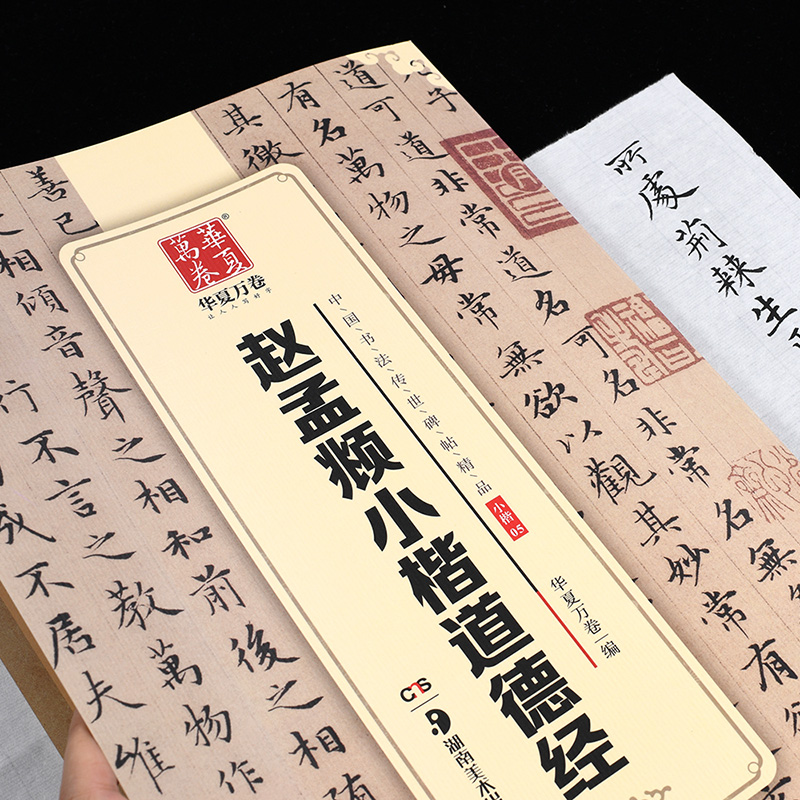 子
道可道非常道名可名非常名無
有名萬物之母常無欲以觀其妙常有欲
其徼
善已
相傾音聲之相和前後之相
行不言之教萬物作
成不居夫唯
華夏萬卷
®
华夏万卷
让人人写好字
中国书法传世碑帖精品
小楷05
华夏万卷 编
赵孟頫小楷道德经
CNS
湖南美术出
所處荊棘生